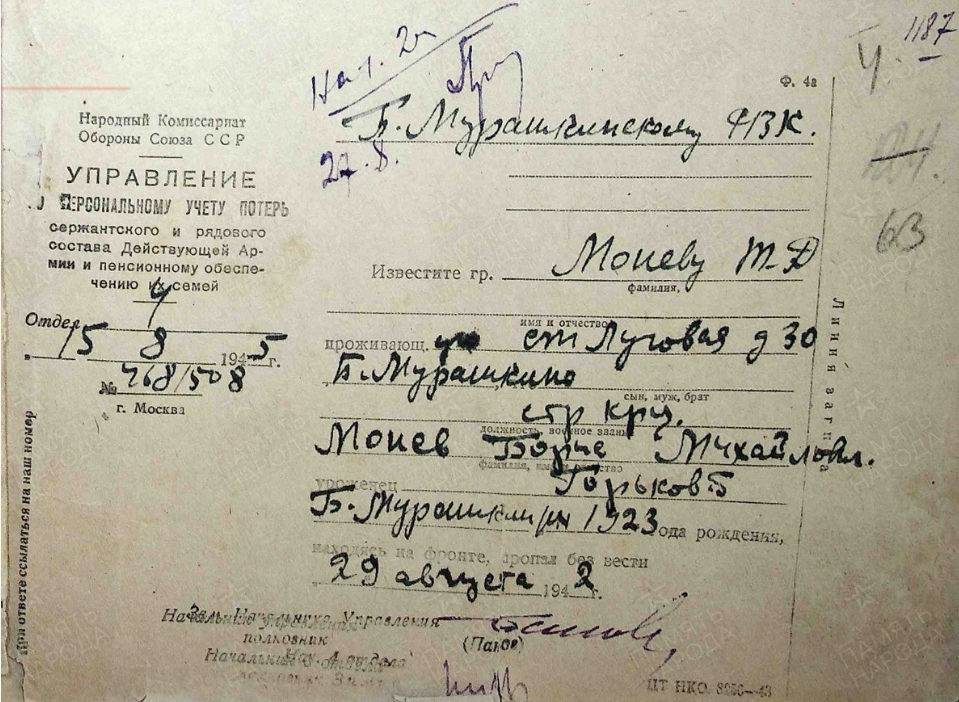 1187
4
Нач. 2ч
Ф. 4а
Б. Мурашкинскому РВК.
27.8.
63
Народный Комиссариат
Обороны Союза ССР
УПРАВЛЕНИЕ
ПЕРСОНАЛЬНОМУ УЧЕТУ ПОТЕРЬ
сержантского и рядового
состава Действующей Ар-
мии и пенсионному обеспе-
чению их семей
Отдел 4
15 8 1945 г.
№ 768/508
г. Москва
При ответе ссылаться на наш номер
Известите гр. Моневу Т-Д
фамилия,
имя и отчество
проживающ. ст Луговая д 30
Б. Мурашкино
сын, муж, брат
стр кр-ц.
должность, военное звание
Монев Борис Михайлович.
фамилия, имя и отчество
уроженец Горьков Б
Б. Мурашкин рн 1923 года рождения,
находясь на фронте, пропал без вести
29 августа 1942 г.
Зам. Начальника Управления
полковник
(Папов)
Нач. 4 отдела
ЦТ НКО. 8256—43
Линия загиба